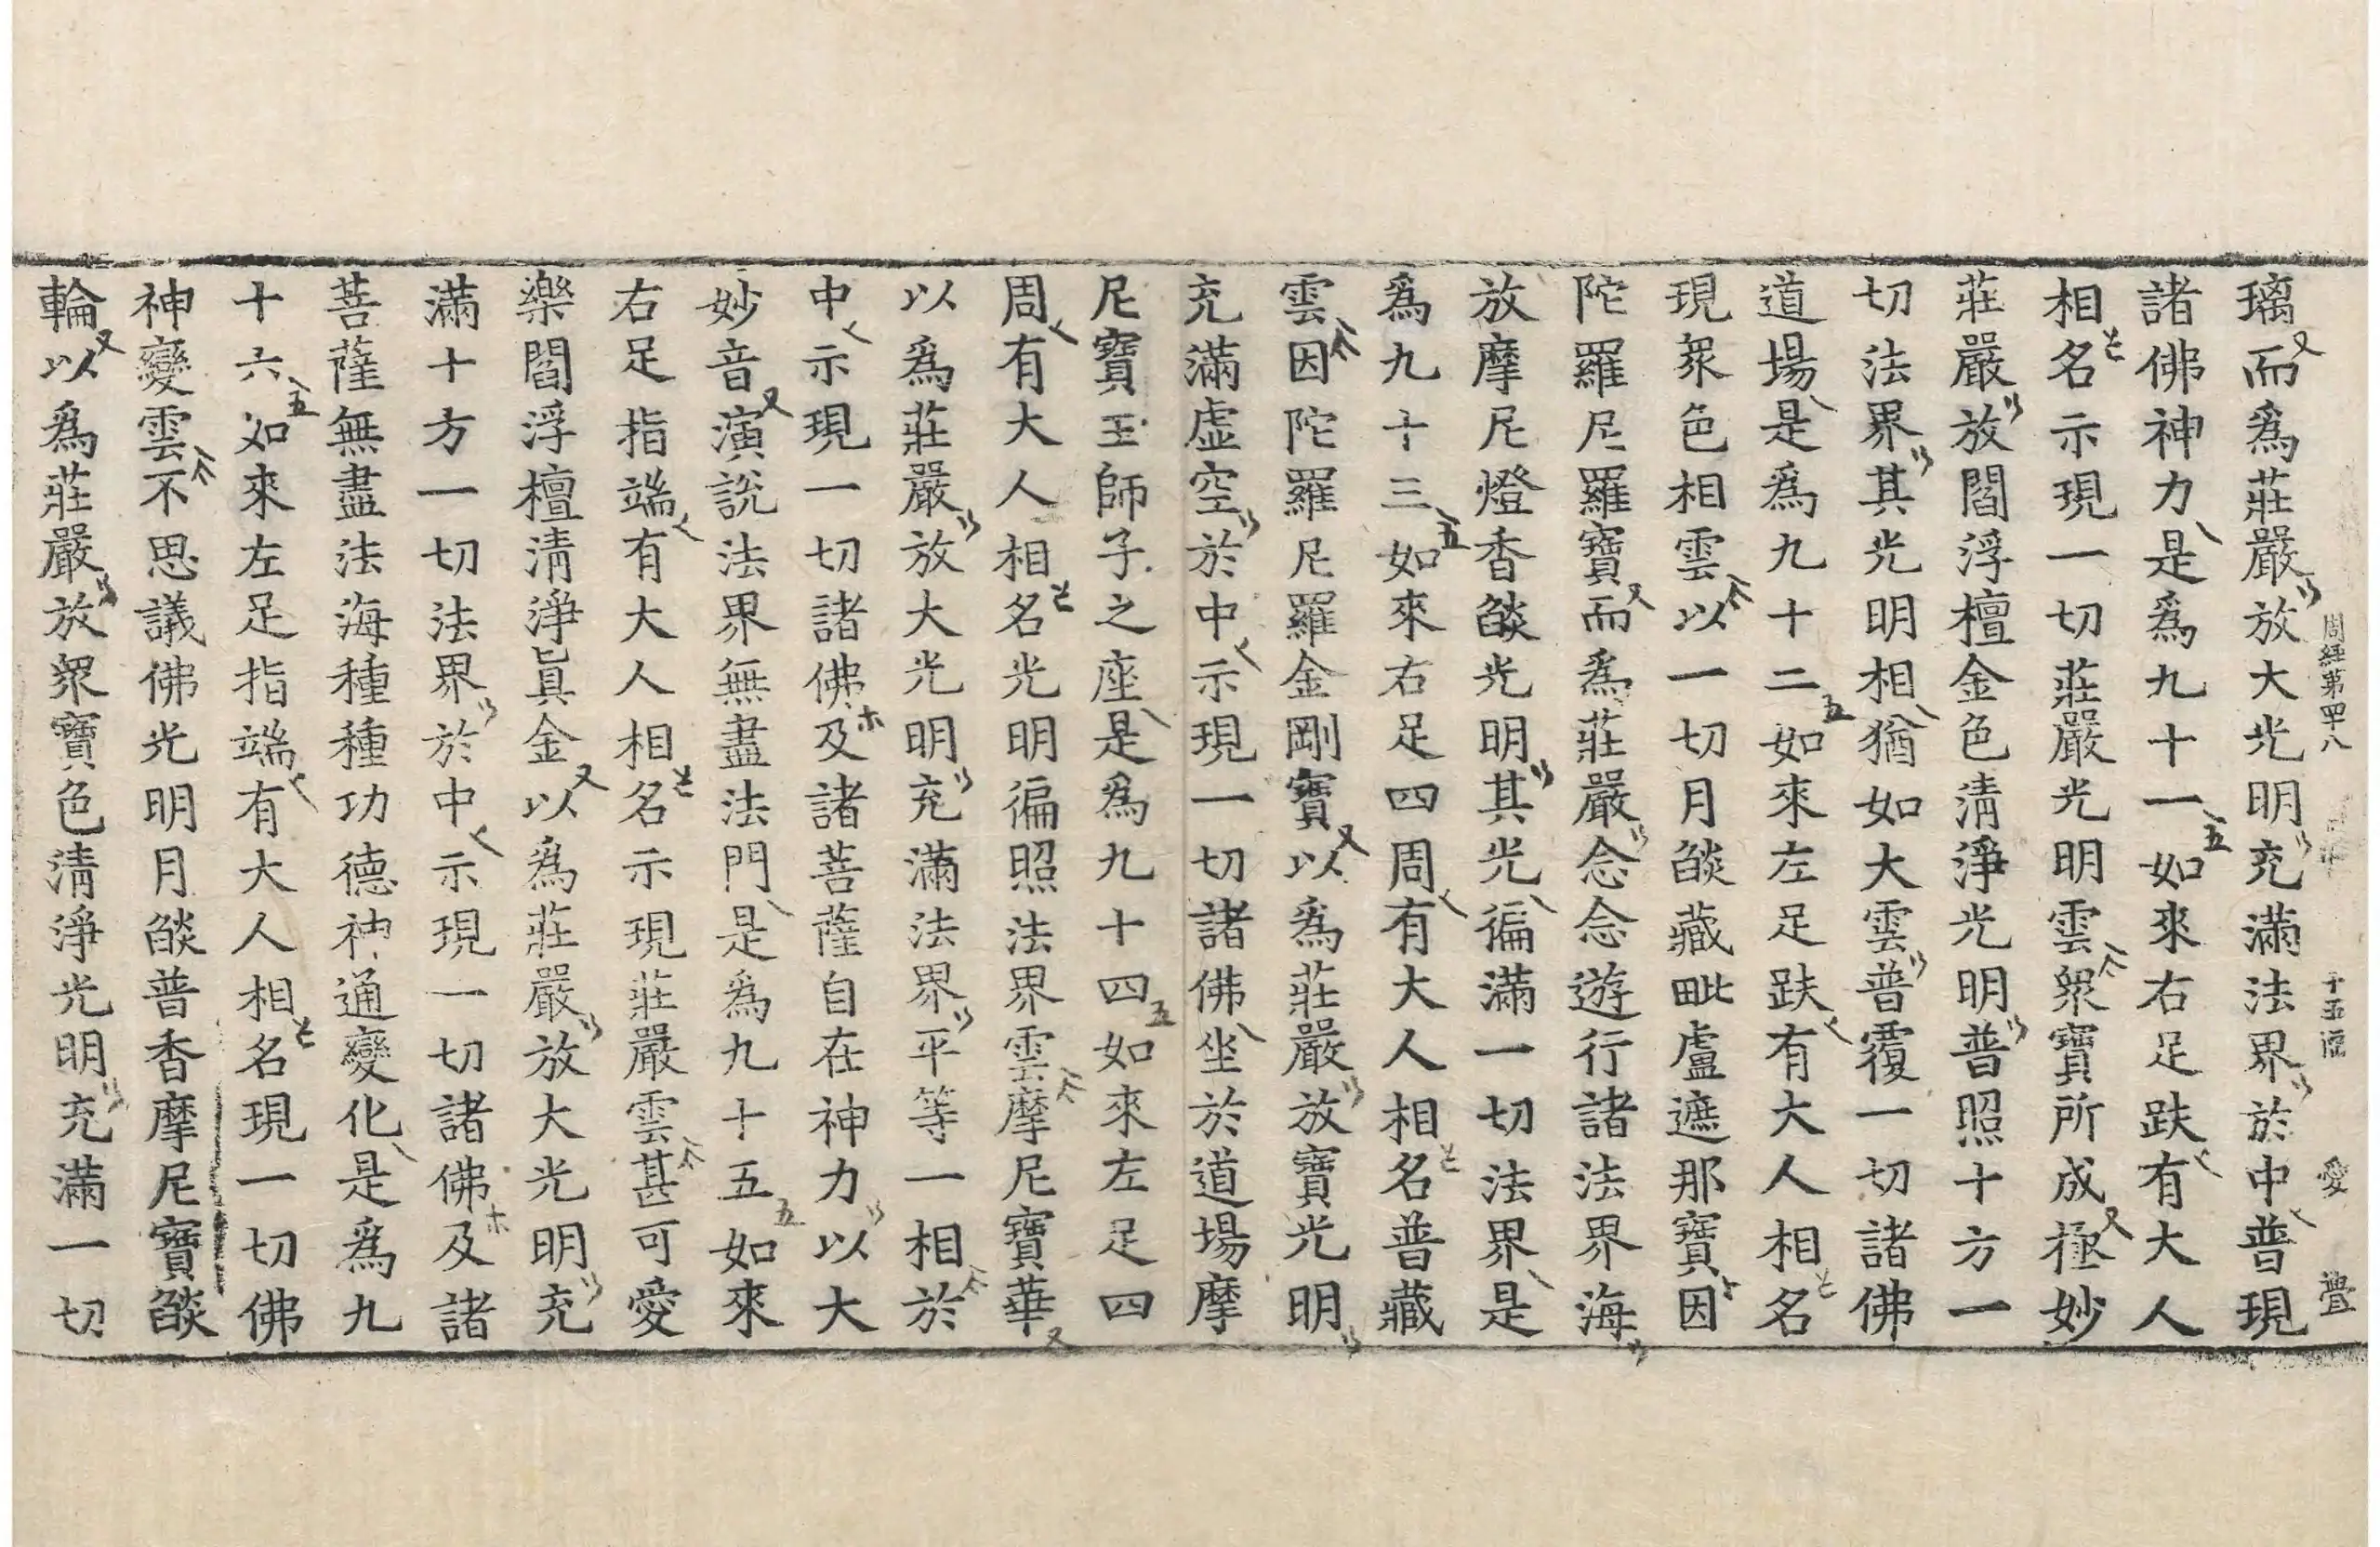 周経第四十八 十五張 愛 畳
璃而爲莊嚴放大光明充滿法界於中普現
諸佛神力是爲九十一如來右足趺有大人
相名示現一切莊嚴光明雲衆寶所成極妙
莊嚴放閻浮檀金色清淨光明普照十方一
切法界其光明相猶如大雲普覆一切諸佛
道場是爲九十二如來左足趺有大人相名
現衆色相雲以一切月焰藏毗盧遮那寶因
陀羅尼羅寶而爲莊嚴念念遊行諸法界海
放摩尼燈香焰光明其光徧滿一切法界是
爲九十三如來右足四周有大人相名普藏
雲因陀羅尼羅金剛寶以爲莊嚴放寶光明
充滿虛空於中示現一切諸佛坐於道場摩
尼寶王師子之座是爲九十四如來左足四
周有大人相名光明徧照法界雲摩尼寶華
以爲莊嚴放大光明充滿法界平等一相於
中示現一切諸佛及諸菩薩自在神力以大
妙音演說法界無盡法門是爲九十五如來
右足指端有大人相名示現莊嚴雲甚可愛
樂閻浮檀清淨眞金以爲莊嚴放大光明充
滿十方一切法界於中示現一切諸佛及諸
菩薩無盡法海種種功德神通變化是爲九
十六如來左足指端有大人相名現一切佛
神變雲不思議佛光明月焰普香摩尼寶焰
輪以爲莊嚴放衆寶色清淨光明充滿一切